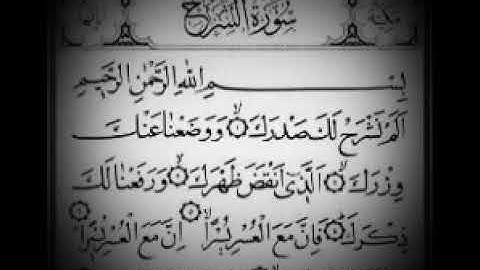 سُورَةُ الشَّرْحِ
بِسْمِ اللهِ الرَّحْمٰنِ الرَّحِيْمِ
اَلَمْ نَشْرَحْ لَكَ صَدْرَكَ ۙ وَوَضَعْنَا عَنْكَ
وِزْرَكَ ۙ الَّذِيْٓ اَنْقَضَ ظَهْرَكَ ۙ وَرَفَعْنَا لَكَ
ذِكْرَكَ ۙ فَاِنَّ مَعَ الْعُسْرِ يُسْرًا ۙ اِنَّ مَعَ الْعُسْرِ يُسْرًا